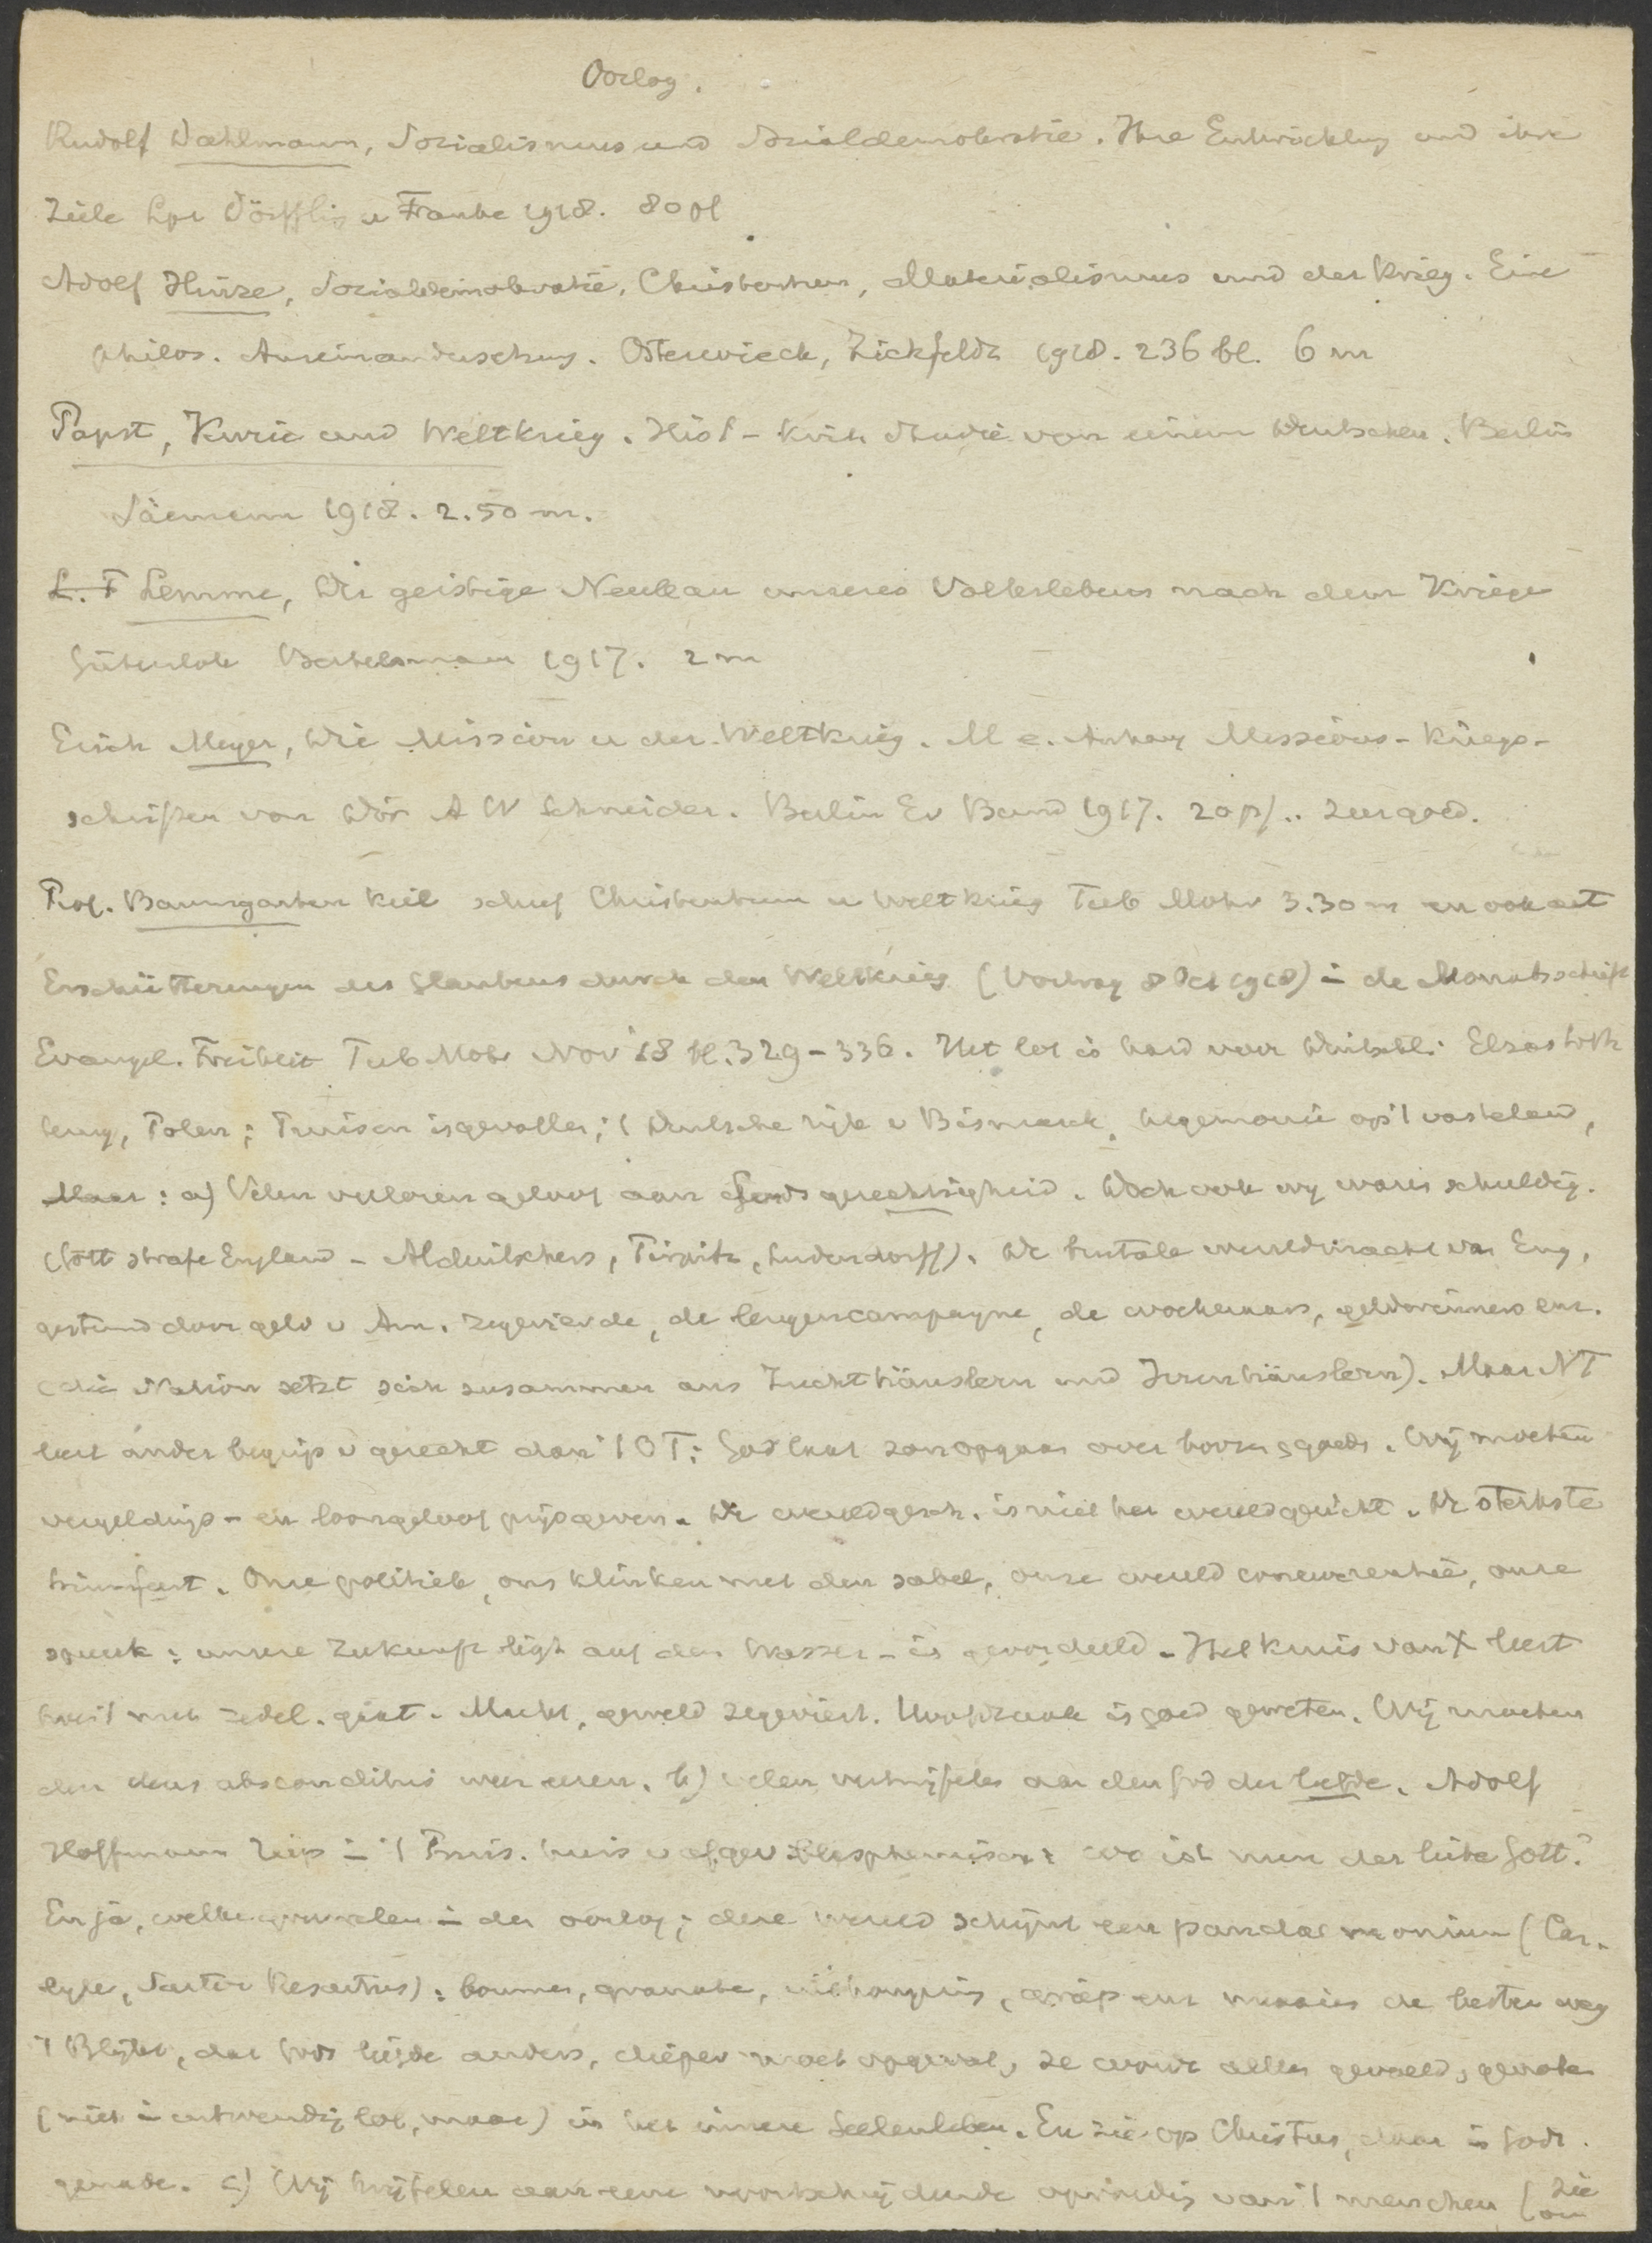 Oorlog.
Rudolf Dahlmann, Sozialismus und Sozialdemokratie. Ihre Entwicklung und ihre
Ziele Lpz Dörffling u Franke 1918. 80 pf
Adolf Hinze, Sozialdemokratie, Christentum, Materialismus und der Krieg. Eine
philos. Auseinandersetzung. Osterwieck, Zickfeldt 1918. 236 bl. 6 m
Papst, Kurie und Weltkrieg. Hist-krit. Studie von einem Deutschen. Berlin
Säemann 1918. 2.50 m.
L. F Lemme, Der geistige Neubau unseres Volkslebens nach dem Kriege
Gütersloh Bertelsmann 1917. 2 m
Erich Meyer, Die Mission u der Weltkrieg. M e. Anhang Missions-Kriegs-
schriften von Dir A W Schreiber. Berlin Ev Bund 1917. 20 pf.. zeer goed.
Prof. Baumgarten Kiel schrijf Christentum u Weltkrieg Tub Mohr 3.30 m en ook
Erschütterungen des Glaubens durch den Weltkrieg (Vortrag 8 Oct 1918) in de Monatschrift
Evangel. Freiheit Tub Mohr Nov 18 bl. 329-336. Het lot is hard voor Duitschl: Elzas Loth
ringen, Polen; Pruisen is gevallen; 't Deutsche rijk v Bismarck, hegemonie op 't vasteland,
Maar: a) Velen verloren geloof aan Gods gerechtigheid. Doch ook wij waren schuldig.
(Gott strafe England - Alduitschers, Tirpitz, Ludendorff). De brutale wereldmacht van Eng,
gesteund door geld v Am. zegevierde, de leugencampagne, de woekeraars, geldwinners enz.
(die Nation setzt sich zusammen aus Zuchthäuslern und Irrenhäuslern). Maar NT
leert ander begrip v gerecht dan 't OT: God laat zon opgaan over boozen & goeden. Wij moeten
vergeldings- en loongeloof prijsgeven. De wereldgesch. is niet het wereldgericht. De sterkste
triumfeert. Onze politiek, ons klinken met den sabel, onze wereld concurrentie, onze
spreuk: unsere Zukunft liegt auf dem Wasser - is geoordeeld. Het kruis van X leert
ons 't met zedel. gezet. Macht, geweld zegeviert. Hoofdzaak is goed geweten. Wij moeten
den deus absconditus weer eeren. b) velen vertwijfelen aan den God der liefde. Adolf
Hoffmann riep in 't Pruis. huis v afgev. blasphemisch: wo ist nun der liebe Gott?
En ja, welke gruwelen in den oorlog; deze wereld schijnt een pandaemonium (Car-
lyle, Sartor Resartus): bommen, granaten, uithongering, griep enz maaien de besten weg
't Blijkt, dat Gods liefde anders, dieper moet opgevat, ze wordt alleen gevoeld, genoten
(niet in uitwendig lot, maar) in het innere Seelenleben. En zie op Christus, daar is Gods
genade. c) Wij twijfelen aan eene voortschrijdende opvoeding van 't menschen (zie
om